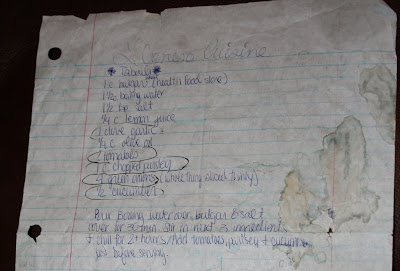 Cuisine
* Tabouli *
1 c. bulgar (health food store)
1 1/2 c. boiling water
1 1/2 tsp salt
1/4 c lemon juice
1 clove garlic
1/4 c olive oil
2 tomatoes
1 c chopped parsley
4 green onions (whole thing sliced thinly)
1/2 cucumber
Pour Boiling water over bulgar & salt
cover for 30 min. Stir in next 3 ingredients
+ chill for 2+ hours. Add tomatoes, parsley + cucumber
just before serving.